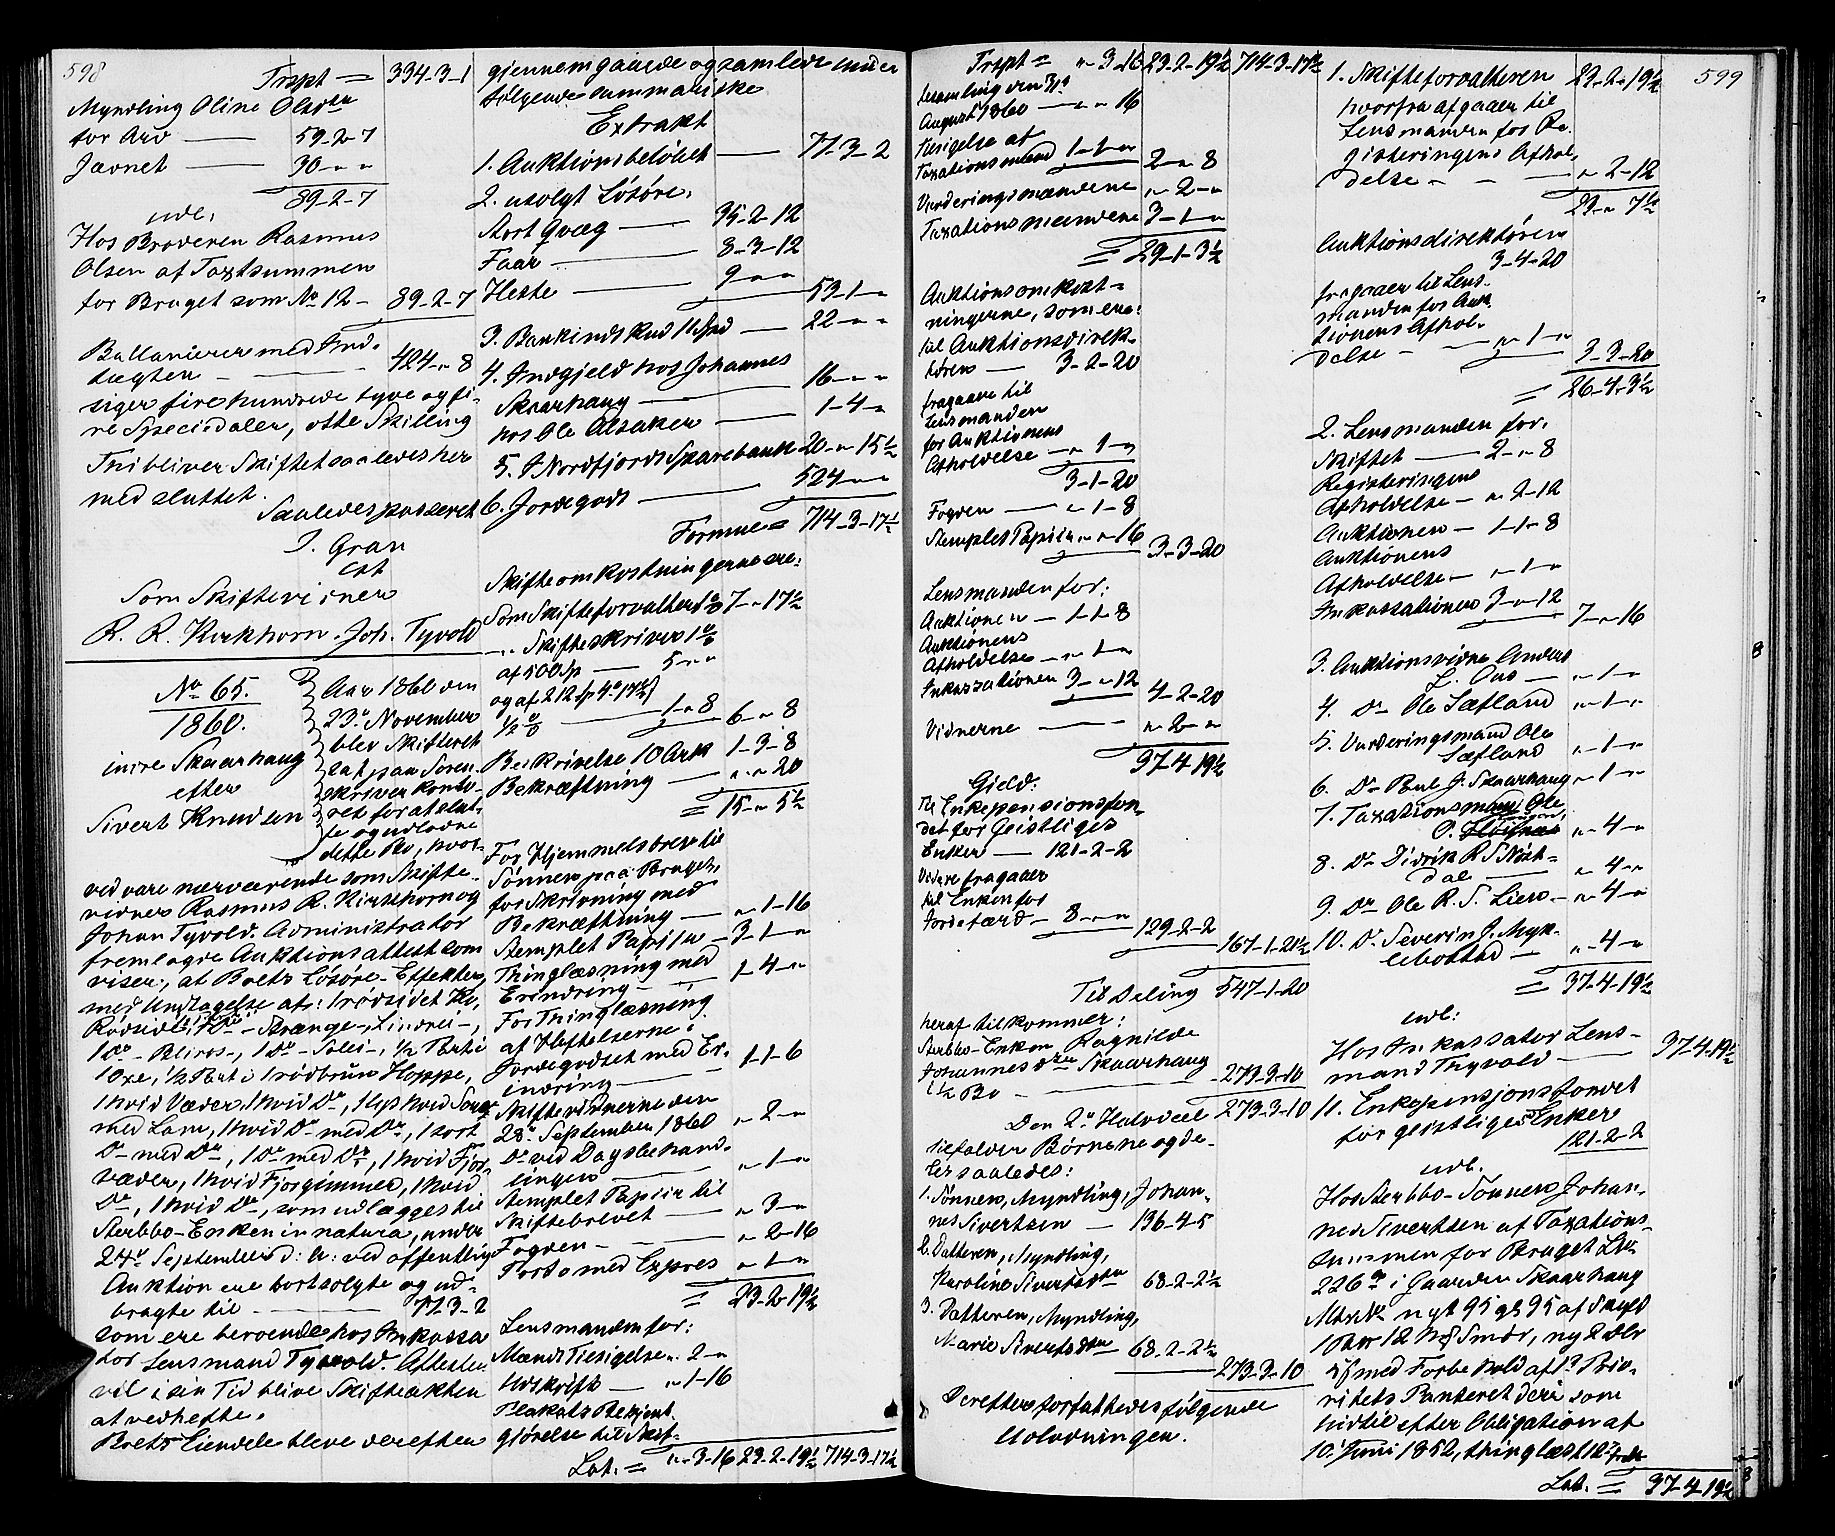 598
Trspt = 334-3-1
Myndling Oline Olsdr
for Arv — 59-2-7
Jævnet — 30-"-"
89-2-7
udl.
Hos Broderen Rasmus
Olsen af Taxtsummen
for Bruget som No 12 - 89-2-7
Ballancerer med Ind-
tægten - — 424-"-8
siger fire hundrede tyve og fi-
re Speciedaler, otte Skilling
Thi bliver Skiftet saaledes her
med sluttet.
Saaledes passeret
J. Gran
cst
Som Skiftevidner
R. R. Kirkhorn. Joh. Tyvold
No 65.
1860.
indre Skaarhaug
efter
Sivert Knudsen
Aar 1860 den
23de November
blev Skifteret
sat paa Soren-
skriver konto-
ret for at slut-
te og udlodde
dette Bo, hvor-
ved vare nærværende som Skifte-
vidner Rasmus R. Kirkhorn og
Johan Tyvold. Administrator
fremlagde Auktionsattest som
viser, at Boets Løsøre-Effekter,
med Undtagelse af: 1 rødsidet Ko,
Rødsidet, 1 Do - Strænge-, Lindrei-,
1 Do - Bliros-, 1 Do - Solei-, 1/2 Part i
1 Oxe, 1/2 Part i 1 rødbrun Hoppe,
1 hvid Væder, 1 hvid Do, 1 lys hvid Soug
med Lam, 1 hvid Do med Do, 1 sort
Do med Do, 1 Do med Do, 1 hvid Fjor-
væder, 1 hvid Fjorgimmer, 1 hvid
Do, 1 hvid Do, som udlægges til
Sterbbo-Enken in natura, under
24de September d: A: ved offentlig
Auktion ere bortsolgte og ud-
bragte til - — 77-3-2
som ere beroende hos Inkassa
tor Lensmand Tyvold. Attesten
vil i sin Tid blive Skifteakten
at vedhefte.
Boets Eiendele bleve derefter
gjennemgaaede og samlede under
følgende summariske
Extrakt
1. Auktionsbeløbet — 77-3-2
2. usolgt Løsøre.
Stort Qvæg — 35-2-12
Faar — 8-3-12
Heste — 9-"-"
53-1-"
3. Bankindskud — 22-"-"
4. Indgjeld hos Johannes
Skaarhaug — 16-"-"
hos Ole Aasaker — 1-4-"
5. I Nordfjords Sparebank 20-"-15½
6. Jordegods — 524-"-"
Formue = 714-3-17½
Skifteomkostningerne ere:
Som Skifteforvalter 1% 7-"-17½
-"- Skifteskriver 1%
af 500 Sp — 5-"-"
og af 212 Sp 4.17½
½% — 1-"-8 6-"-8
Beskrivelse 10 Ark 1-3-8
Bekræftning — "-"-20
= 15-"-5½
For Hjemmelsbrev til
Sønnen paa Bruget,
for Skrivning med
Bekræftning — "-1-16
Stemplet Papiir - 3-1-"
Thinglæsning med
Erindring — 1-4-"
For Thinglæsning
af Heftelserne i
Jordegodset med Er-
indring — 1-1-6
Skiftevidnerne den
28de September 1860 "-2-"
Do ved Dagsbehand-
lingen — "-1-"
Stemplet Papiir til
Skiftebrevet — "-3-"
Fogden - — "-2-16
Porto med Expres "-1-"
= 23-2-19½
Lensmanden for:
Mænds Tilsigelse "-2-"
Udskrift — "-1-16
Plakats Bekjent-
gjørelse til Skif-
Lat. = "-3-16 23-2-19½ 714-3-17½
Trspt = "-3-16 23-2-19½ 714-3-17½
tesamling den 31te
August 1860 — "-"-16
Tilsigelse af
Taxationsmænd 1-1-" 2-"-8
Vurderingsmændene "-2-"
Taxationsmændene 3-1-"
= 29-1-3½
Auktionsomkost-
ningerne, som ere:
til Auktionsdirek-
tøren — 3-2-20
fragaaer til
Lensmanden
for Auktionens
Afholdelse — "-1-"
3-1-20
Fogden — "-1-8
Stemplet Papiir "-"-16
3-3-20
Lensmanden for:
Auktionen — 1-1-8
Auktionens
Afholdelse — "-1-"
Inkassationen 3-"-12 4-2-20
Vidnerne — "-2-"
37-4-19½
Gjeld:
Til Enkepensionsfon-
det for Geistliges
Enker — 121-2-2
Videre fragaaer
til Enken for
Jordefærd — 8-"-" 129-2-2
167-1-21½
Til Deling 547-1-20
heraf tilkommer:
Sterbbo-Enken Ragnilde
Johannesdtr Skaarhaug
i ½ Bo — 273-3-10
Den 2den Halvdeel 273-3-10
tilfalder Børnene og de-
les saaledes:
1. Sønnen, Myndling, Johan-
nes Sivertsen — 136-4-5
2. Datteren, Myndling,
Karoline Sivertsdtr 68-2-2½
3. Datteren, Myndling,
Marie Sivertsdtr 68-2-2½
273-3-10
Derefter forfattedes følgende
Udlodningen.
599
1. Skifteforvalteren 23-2-19½
hvorfra afgaaer til
Lensmanden for Re-
gisteringens Afhol-
delse - - — "-2-12
23-"-7½
Auktionsdirektøren
3-4-20
fragaaer til Lens-
manden for Auk-
tionens Afhol-
delse - — "-1-"
3-3-20
= 26-4-3½
2. Lensmanden for.
Skiftet — 2-"-8
Registeringens
Afholdelse - "-2-12
Auktionen - 1-1-8
Auktionens
Afholdelse - "-1-"
Inkassationen 3-"-12
7-"-16
3. Auktionsvidne Anders
L. Aas — "-1-"
4. Do Ole Sætland "-1-"
5. Vurderingsmand Ole
Sætland "-1-"
6. Do Poul J. Skaarhaug "-1-"
7. Taxationsmand Ole
O. "-4-"
8. Do Didrik R.
dal — "-4-"
9. Do Ole R. S. Lien - "-4-"
10. Do Severin J. Myk-
lebostad — "-4-"
= 37-4-19½
udl:
Hos Inkassator Lens-
mand Thyvold — 37-4-19½
11. Enkepensjonsfondet
for geistliges Enker
121-2-2
udl.
Hos Sterbbo-Sønnen Johan-
nes Sivertsen af Taxations-
summen for Bruget Lit.
226a i Gaarden Skaarhaug
Matr. No nyt 95 gl. 95 af Skyld
12 Smør, ny 2 Dlr
med Forbehold af 1ste Prio-
ritets Panteret deri som
hidtil efter Obligation af
10. Juni 1852, thinglæst 12.
Lat. = 37-4-19½